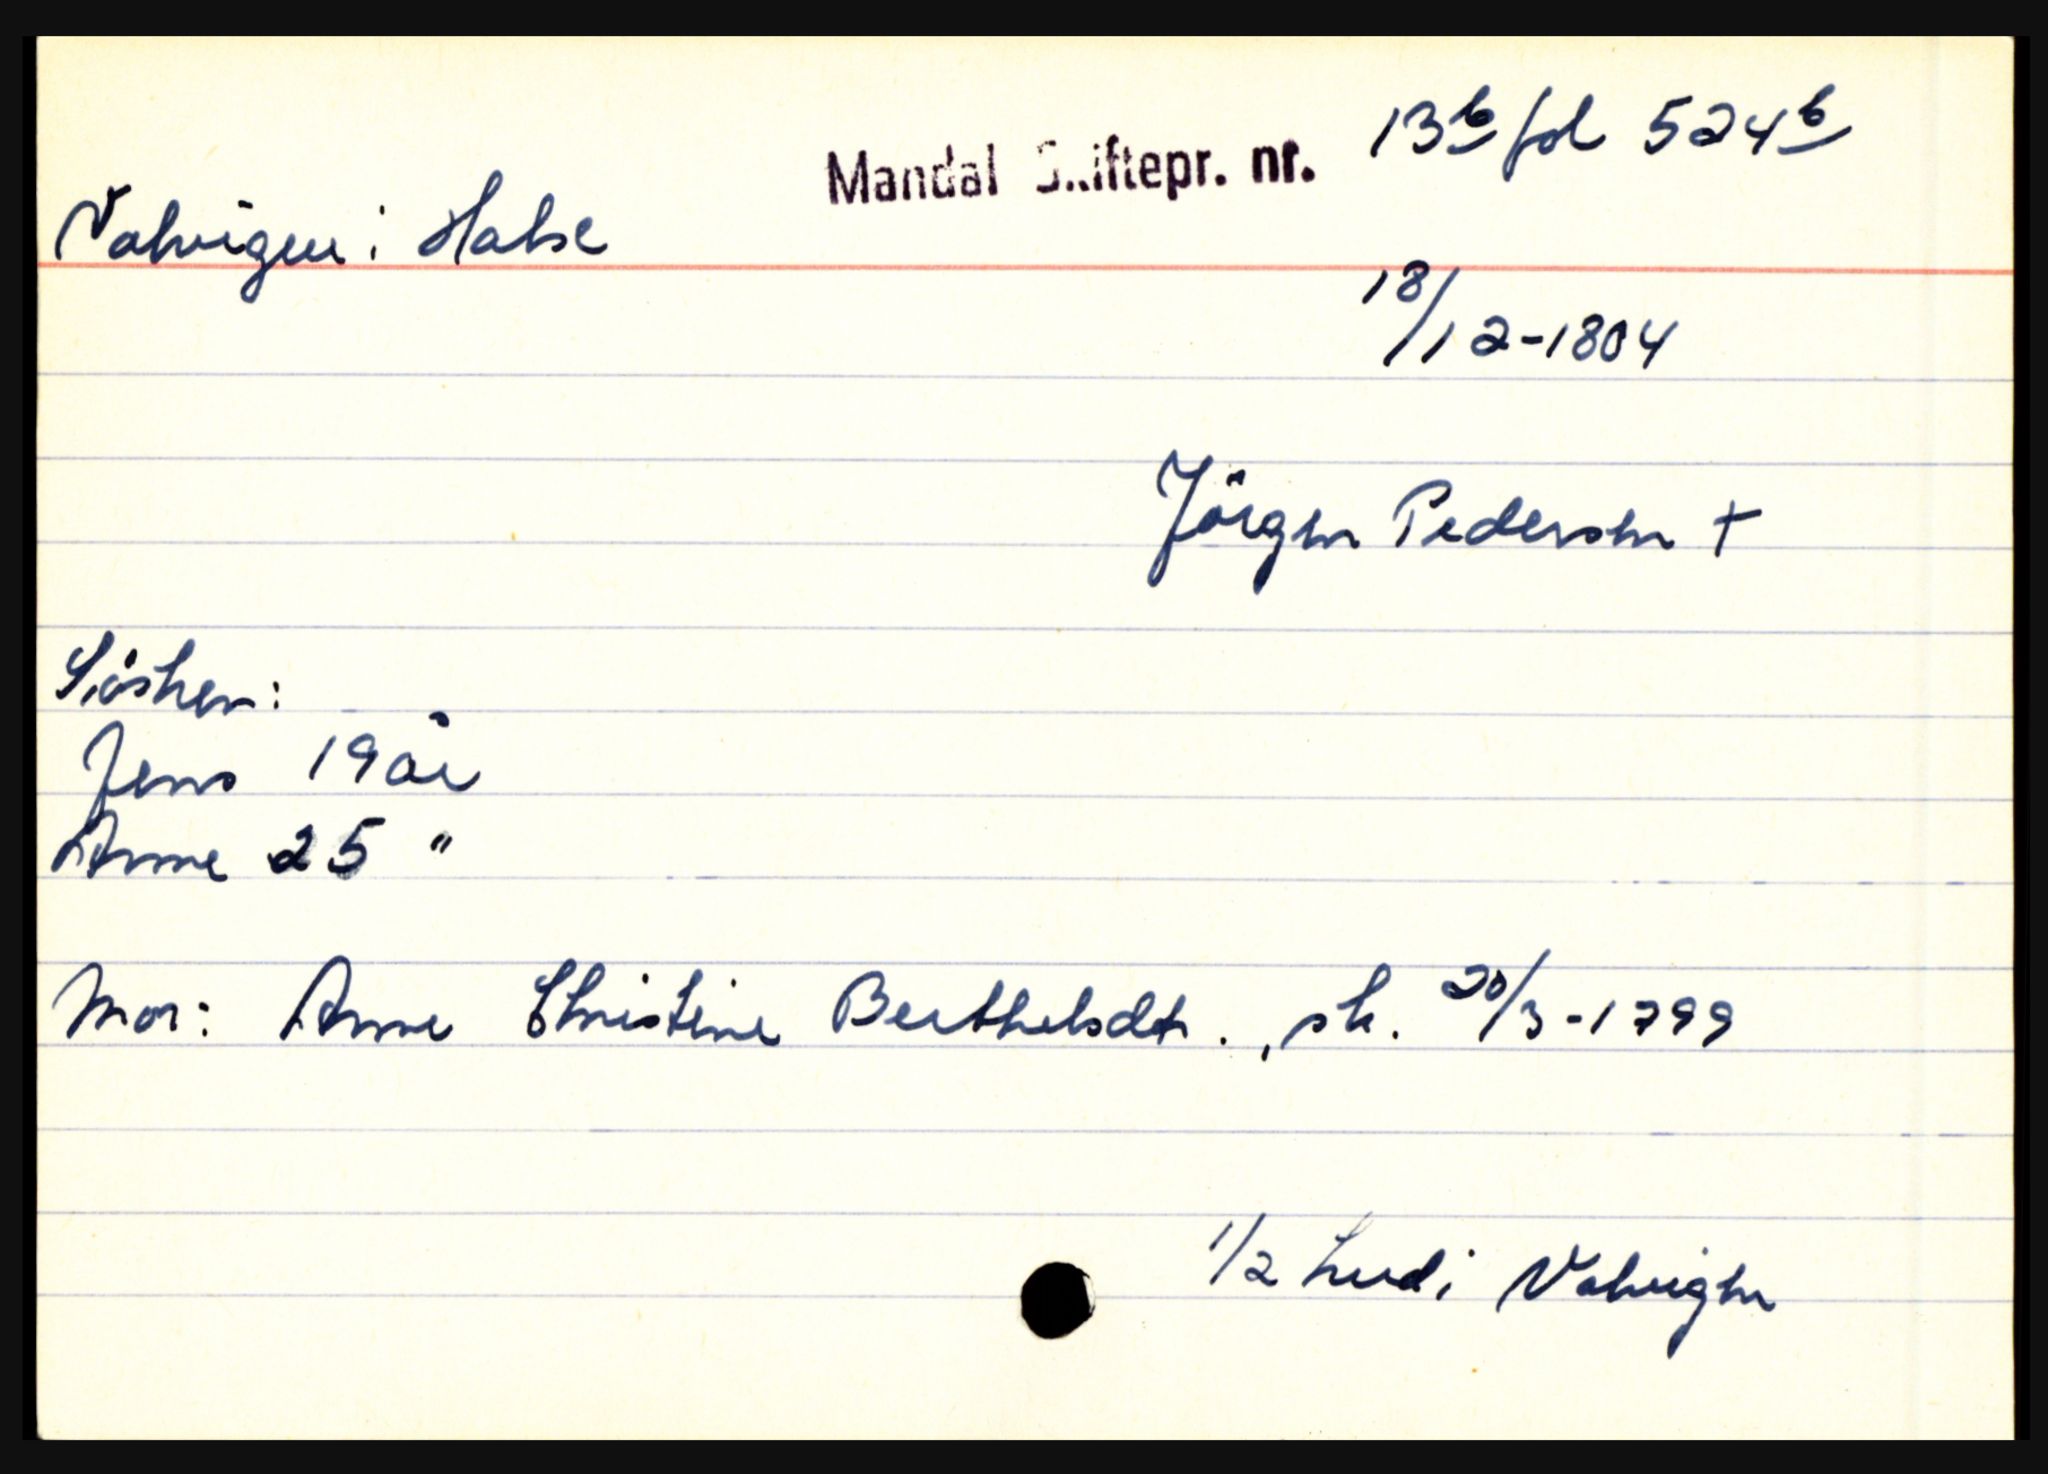 Mandal Skiftepr. nr. 13b fol 524b
Valvigen i Halse
18/12-1804
Jörgen Pedersen +
Sösken:
Jens 19 år
Anne 25 "
Mor: Anne Christine Berthelsdtr., sk. 20/3-1799
1/2 hud i Valvigen